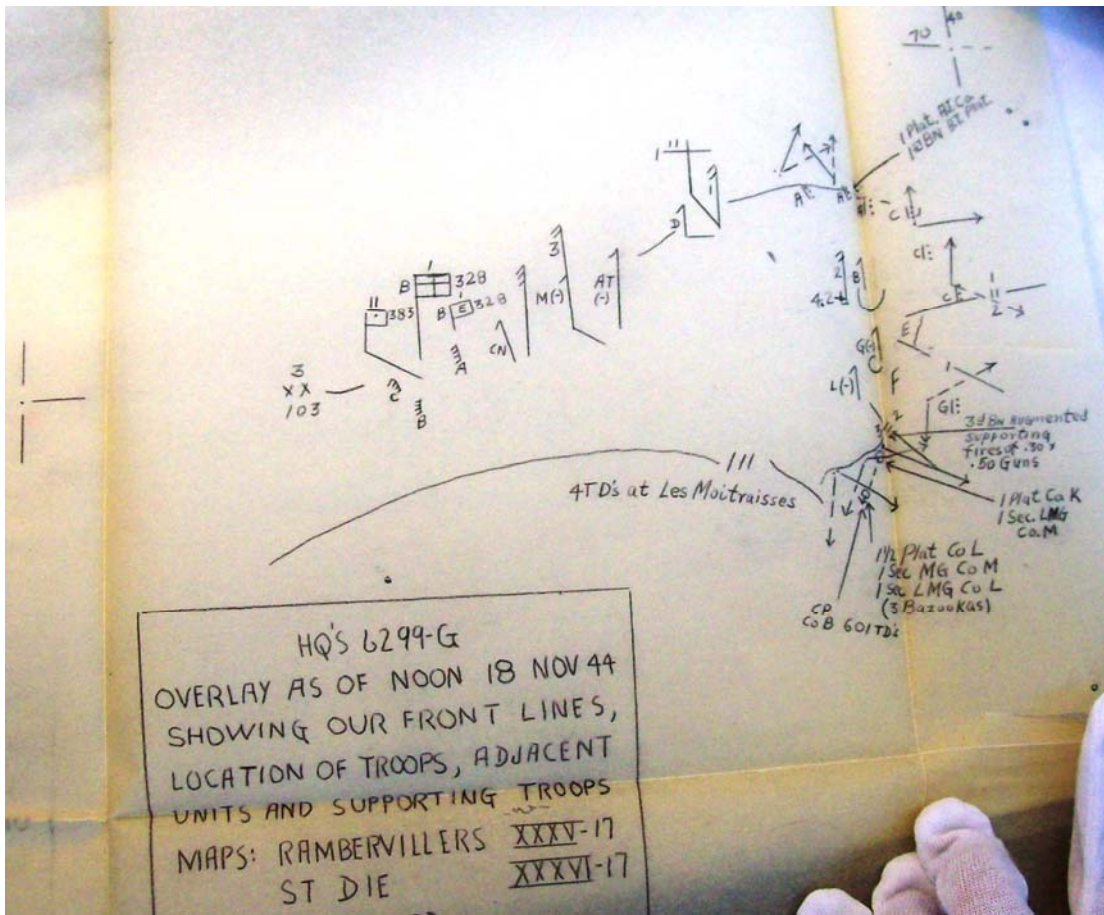 40
70
1 Plat. AT Co
1st BN AT Plat.
1
II
1
D
A
A
A
C
C
C
II
2
3
M(-)
AT
(-)
2
B
4.2
G(-)
L(-)
E
F
1
G
2
3
1
B
328
B
E
328
II
383
CN
A
C
B
3
XX
103
3d BN Augmented
supporting
fires of .30 &
.50 Guns
III
4TD's at Les Moitraisses
1 Plat Co K
1 Sec. LMG
Co. M
1½ Plat Co L
1 Sec MG Co M
1 Sec LMG Co L
(3 Bazookas)
CP
Co B 601 TD's
HQ'S 6299-G
OVERLAY AS OF NOON 18 NOV 44
SHOWING OUR FRONT LINES,
LOCATION OF TROOPS, ADJACENT
UNITS AND SUPPORTING TROOPS
MAPS: RAMBERVILLERS XXXV-17
ST DIE XXXVI-17